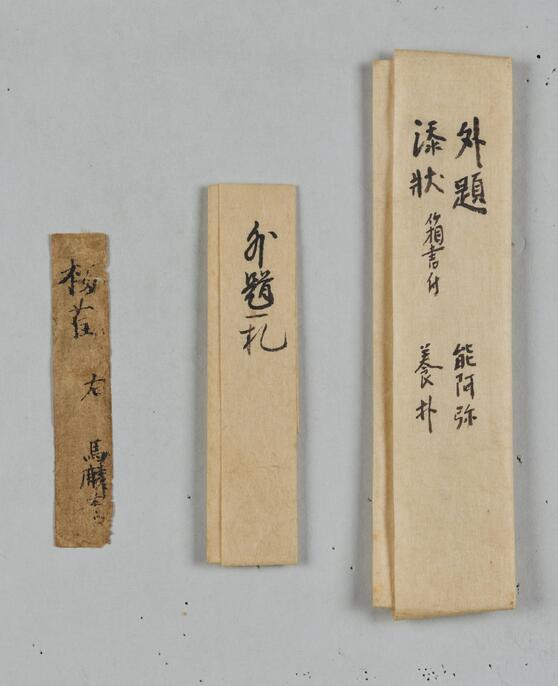 外題 能阿弥
添状 箱書付 養朴
外題一札
右 馬麟